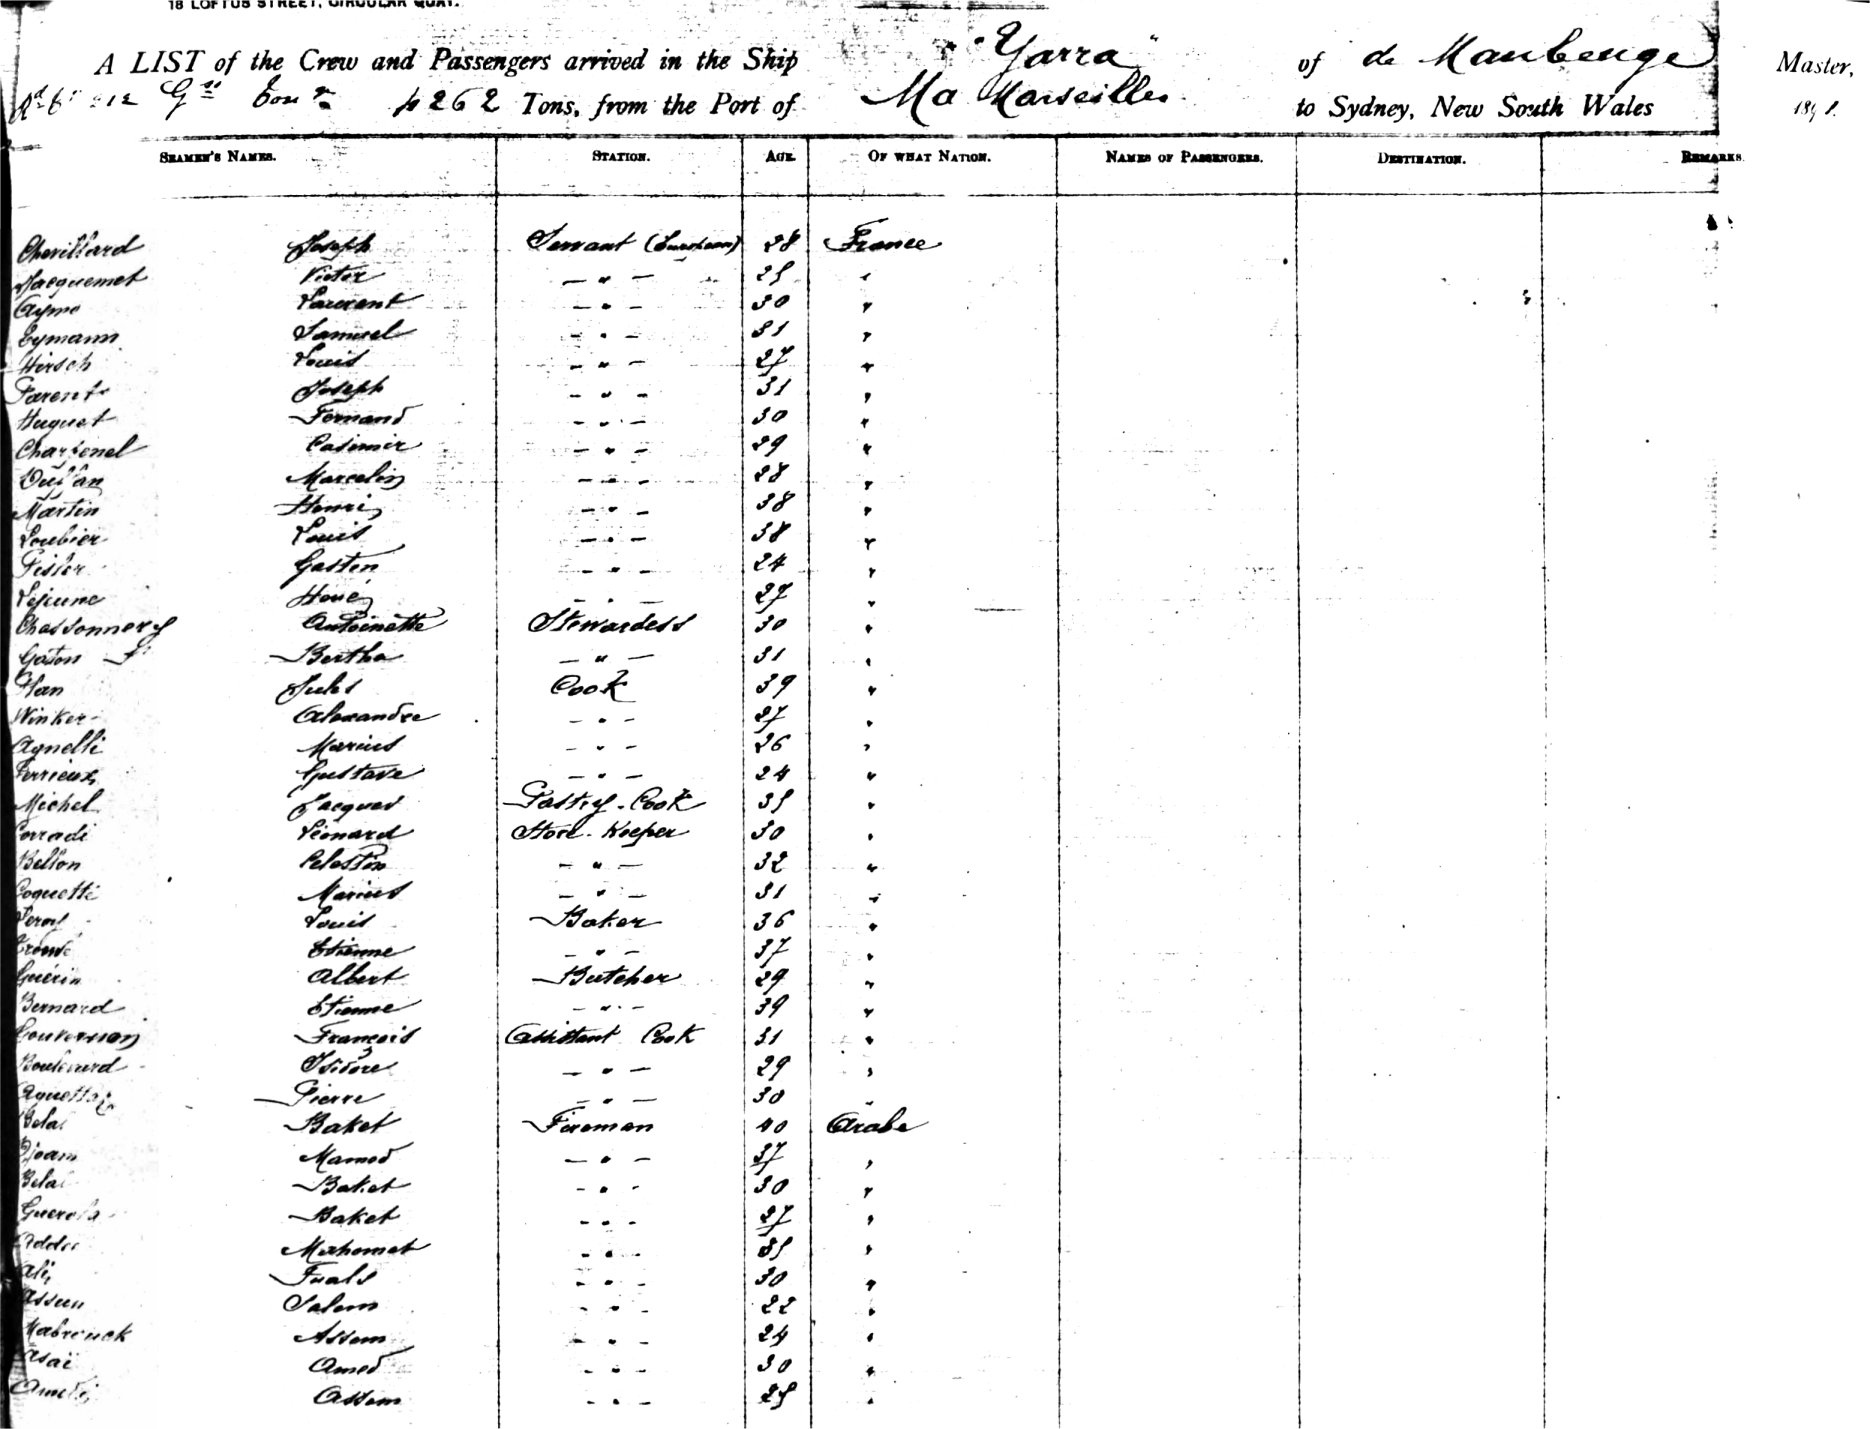 18 LOFTUS STREET, CIRCULAR QUAY.
A LIST of the Crew and Passengers arrived in the Ship "Yarra" of de Maubeuge Master,
4262 Tons, from the Port of Marseilles to Sydney, New South Wales 189
SEAMEN'S NAMES. STATION. AGE. OF WHAT NATION. NAMES OF PASSENGERS. DESTINATION. REMARKS
Chevillard Joseph Servant (European) 28 France
Jacquemet Victor — " — 25 "
Aymo Laurent — " — 30 "
Eymann Samuel — " — 31 "
Hirsch Louis — " — 27 "
Parent Joseph — " — 31 "
Huguet Fernand — " — 30 "
Charpenel Casimir — " — 29 "
Marcelin — " — 28 "
Martin Henri — " — 38 "
Loubier Louis — " — 38 "
Pister Gaston — " — 24 "
Lejeune — " — 27 "
Chassonnery Antoinette Stewardess 30 "
Gaton Bertha — " — 31 "
Han Jules Cook 39 "
Winker Alexandre — " — 27 "
Agnelli Marius — " — 26 "
Perrieux Gustave — " — 24 "
Michel Jacques Pastry-Cook 35 "
Corradi Léonard Store-Keeper 30 "
Bellon Celestin — " — 32 "
Coquetti Marius — " — 31 "
Leroy Louis Baker 36 "
Etienne — " — 37 "
Guérin Albert Butcher 29 "
Bernard Etienne — " — 39 "
François Assistant Cook 31 "
Isidore — " — 29 "
Pierre — " — 30 "
Belal Baket Fireman 40 Arabe
Djoam Mamod — " — 37 "
Belal Baket — " — 30 "
Baket — " — 27 "
Mahomet — " — 35 "
Ali — " — 30 "
Assen Salem — " — 22 "
Mabrouck Assem — " — 24 "
Asaï Amed — " — 30 "
Assem — " — 25 "